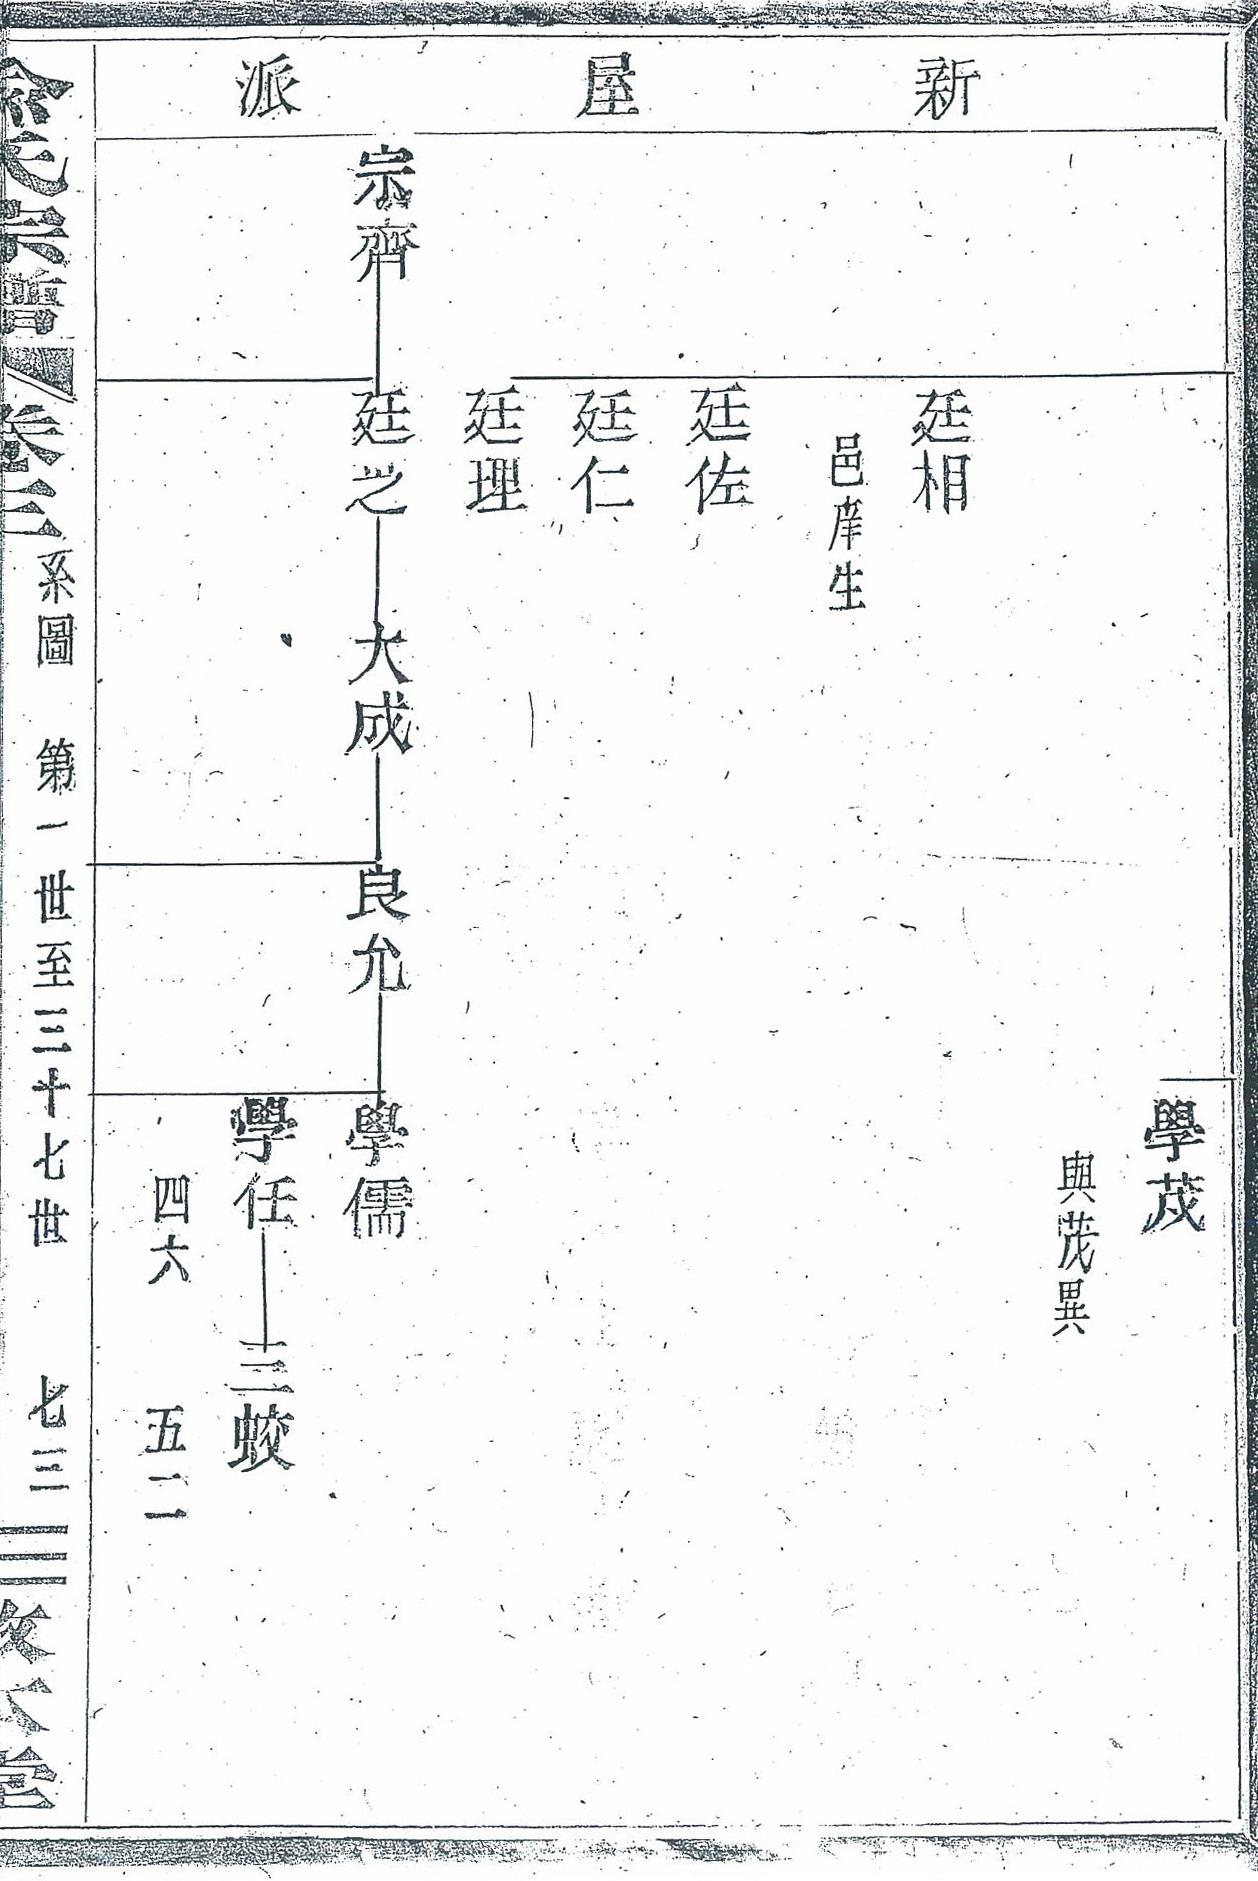 新屋派
學茂
與茂異
廷相
邑庠生
廷佐
廷仁
廷理
宗齊
廷之
大成
良允
學儒
學任
三蛟
四六
五二
余氏宗譜
卷三
系圖
第一世至三十七世
七三
敦本堂